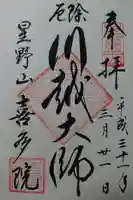 奉拝
平成三十一年
三月廿一日
厄除
川越大師
星野山
喜多院